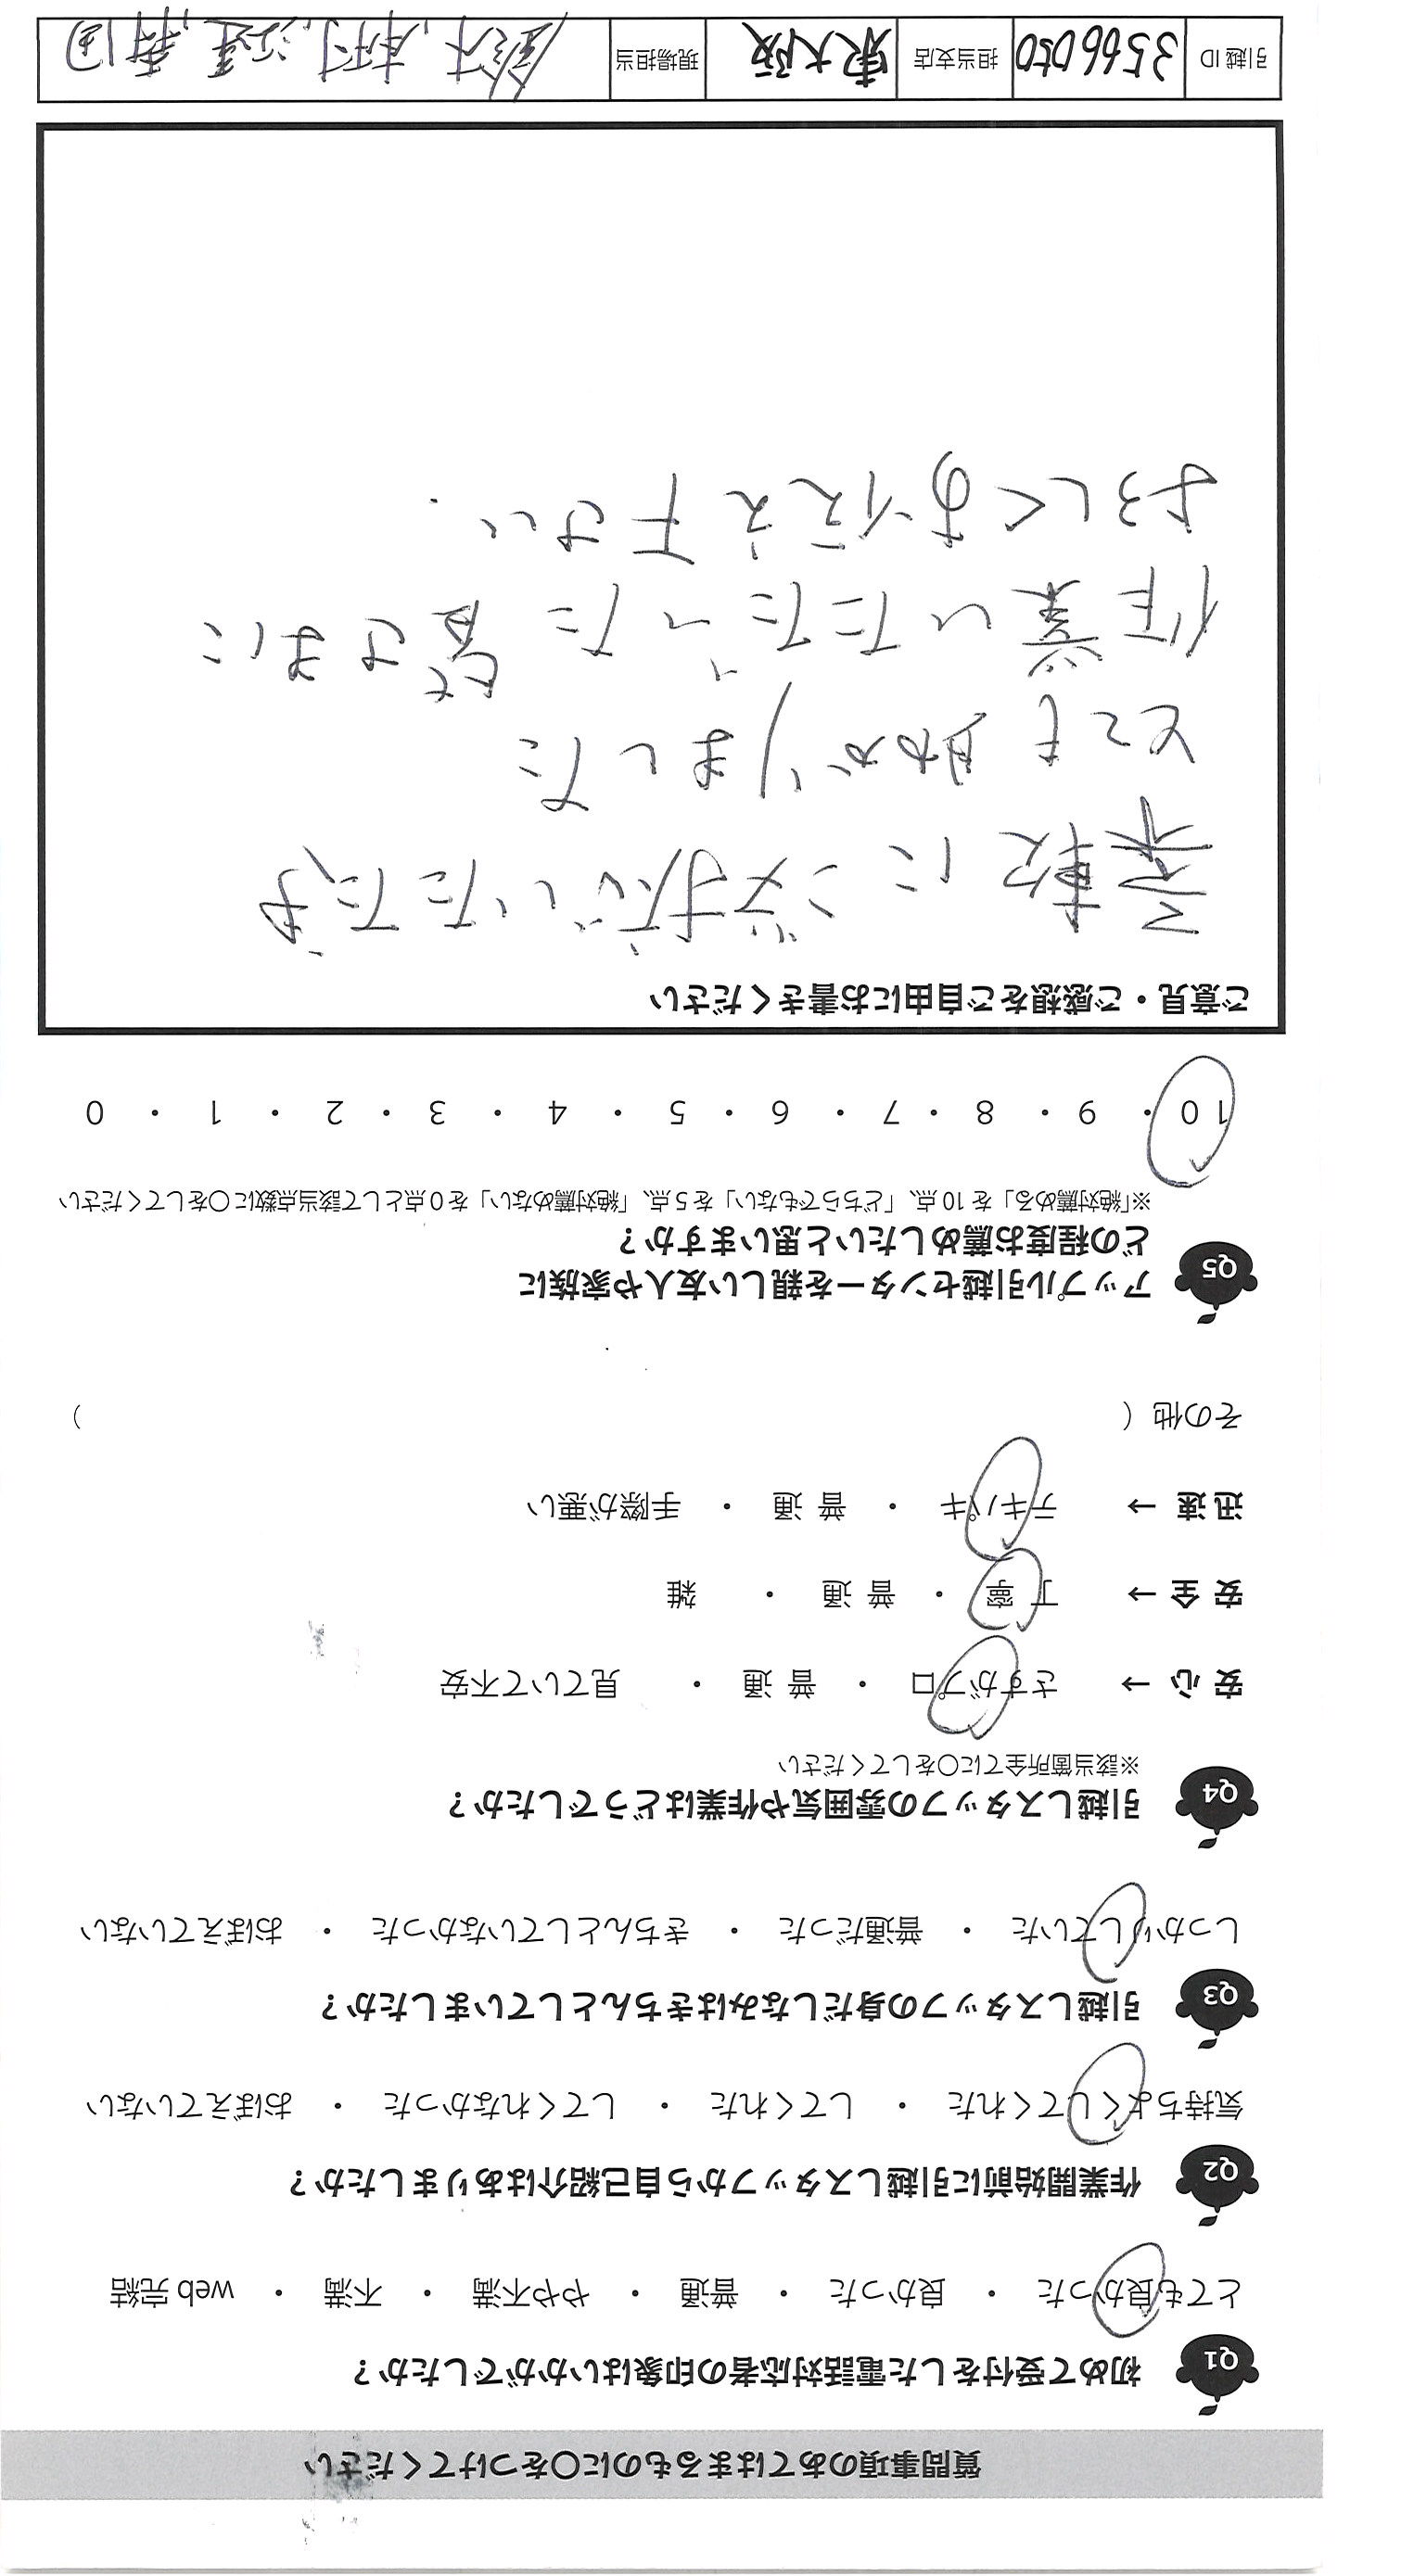 質問事項のあてはまるものに〇をつけてください
Q1 初めて受付をした電話対応者の印象はいかがでしたか？
とても良かった ・ 良かった ・ 普通 ・ やや不満 ・ 不満 ・ web 完結
Q2 作業開始前に引越しスタッフから自己紹介はありましたか？
気持ちよくしてくれた ・ してくれた ・ してくれなかった ・ おぼえていない
Q3 引越しスタッフの身だしなみはきちんとしていましたか？
しっかりしていた ・ 普通だった ・ きちんとしていなかった ・ おぼえていない
Q4 引越しスタッフの雰囲気や作業はどうでしたか？
※該当箇所全てに〇をしてください
安心 → さすがプロ ・ 普通 ・ 見ていて不安
安全 → 丁寧 ・ 普通 ・ 雑
迅速 → テキパキ ・ 普通 ・ 手際が悪い
その他（ ）
Q5 アップル引越センターを親しい友人や家族に
どの程度お薦めしたいと思いますか？
※「絶対薦める」を 10 点、「どちらでもない」を 5 点、「絶対薦めない」を 0 点として該当点数に〇をしてください
10 ・ 9 ・ 8 ・ 7 ・ 6 ・ 5 ・ 4 ・ 3 ・ 2 ・ 1 ・ 0
ご意見・ご感想をご自由にお書きください
柔軟にご対応いただき
とても助かりました
作業いただいた皆さまに
よろしくお伝え下さい.
引越 ID 3566050 担当支店 東大阪 現場担当 鈴木,